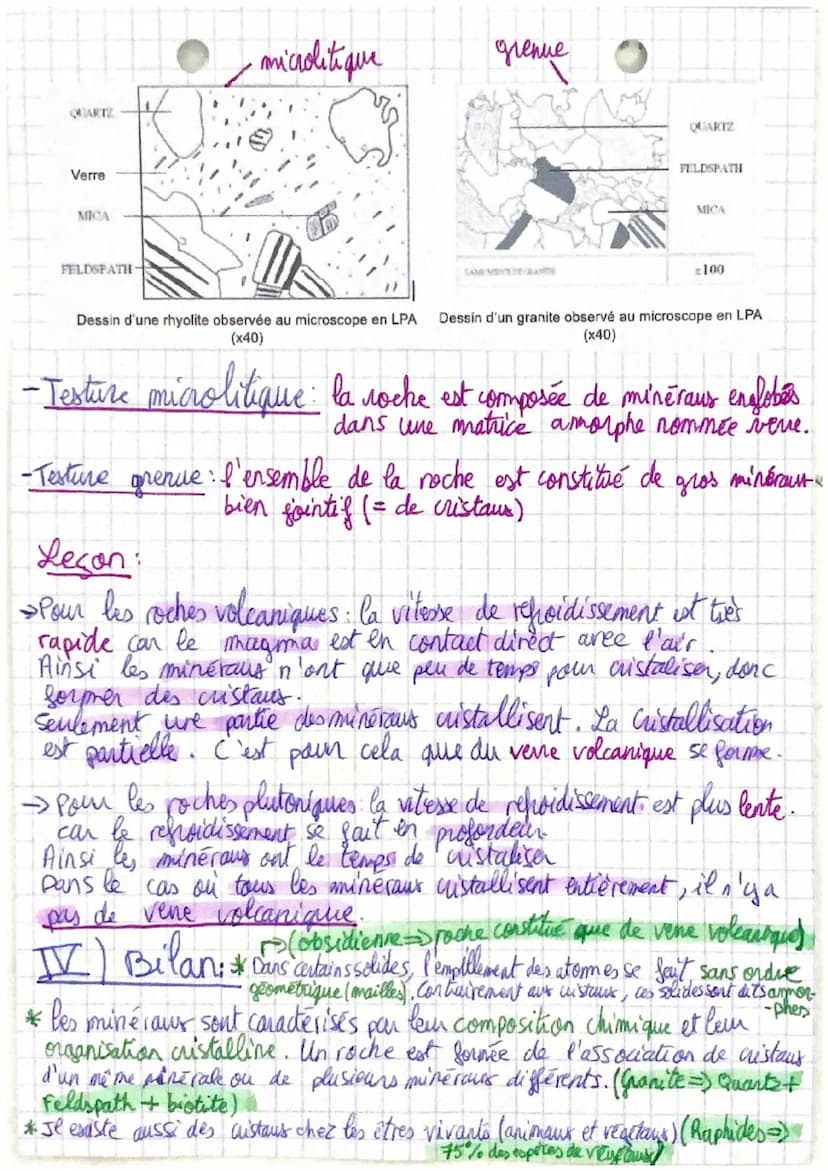 microlitique
grenue
QUARTZ
Verre
MICA
FELDSPATH
QUARTZ
FELDSPATH
MICA
x100
Dessin d'une rhyolite observée au microscope en LPA
(x40)
Dessin d'un granite observé au microscope en LPA
(x40)
- Texture microlitique: la roche est composée de minéraux englobés
dans une matrice amorphe nommée verre.
- Texture grenue: l'ensemble de la roche est constitué de gros minéraux
bien jointif (= de cristaux)
Leçon:
→ Pour les roches volcaniques: la vitesse de refroidissement est très
rapide car le magma est en contact direct avec l'air.
Ainsi les minéraux n'ont que peu de temps pour cristaliser, donc
former des cristaux.
Seulement une partie des minéraux cristallisent. La cristallisation
est partielle. C'est pour cela que du verre volcanique se forme.
→ Pour les roches plutoniques: la vitesse de refroidissement est plus lente.
car le refroidissement se fait en profondeur
Ainsi les minéraux ont le temps de cristaliser
Dans le cas où tous les minéraux cristallisent entièrement, il n'y a
pas de verre volcanique.
→ (obsidienne => roche constitué que de verre volcanique)
IV) Bilan: * Dans certains solides, l'empillement des atomes se fait sans ordre
géométrique (mailles). Contrairement aux cristaux, ces solides sont dits amor-
-phes
* Les minéraux sont caractérisés par leur composition chimique et leur
organisation cristalline. Un roche est formée de l'association de cristaux
d'un même minérale ou de plusieurs minéraux différents. (Granite => Quartz +
Feldspath + biotite)
* Il existe aussi des cristaux chez les êtres vivants (animaux et végétaux) (Raphides =>
75% des espèces de végétaux)